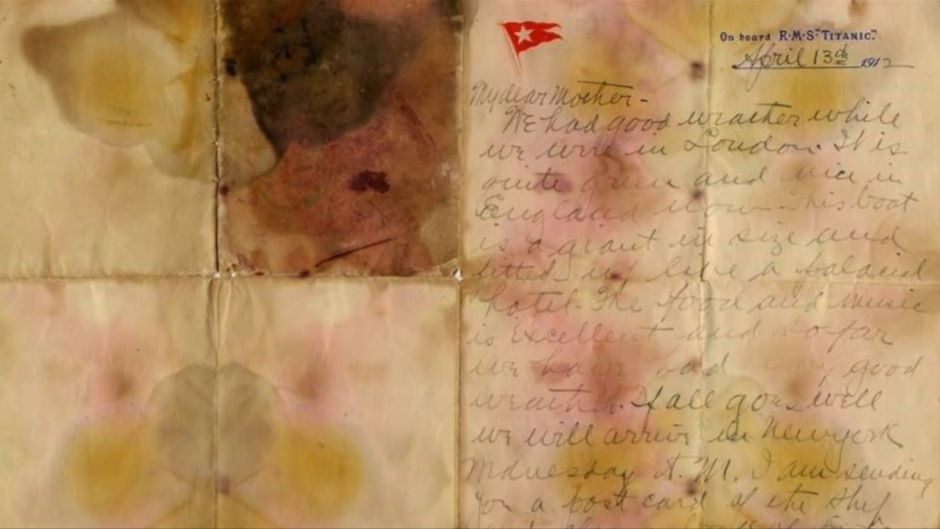 On board R·M·S "TITANIC".
April 13th 1912
My dear Mother -
We had good weather while
we were in London. It is
quite green and nice in
England now. This boat
is a giant in size and
fitted up like a palacial
hotel. The food and music
is excellent and so far
we have had very good
weather. If all goes well
we will arrive in New york
Wednesday A. M. I am sending
you a post card of the ship